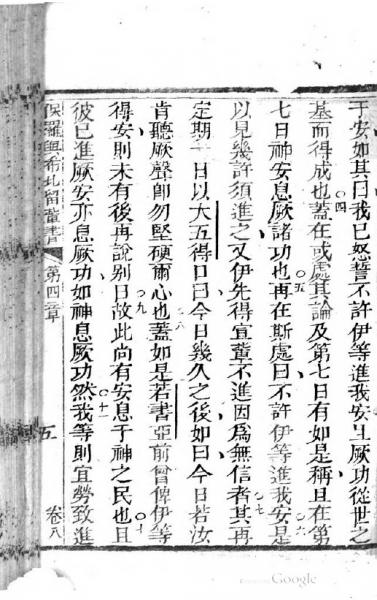 于安如其曰我已怒誓不許伊等進我安且厥功從世之
四
基而得成也蓋在或處其論及第七日有如是稱且在第
七日神安息厥諸功也再在斯處曰不許伊等進我安是
五
六
以見幾許須進之又伊先得宣輩不進因為無信者其再
七
定期一日以大五得口曰今日幾久之後如曰今日若汝
肯聽厥聲即勿堅硬爾心也蓋如是若書亞前曾俾伊等
八
得安則未有後再說別日故此尚有安息于神之民也且
九
十
彼已進厥安亦息厥功如神息厥功然我等則宜勞致進
十一
保羅與希比留輩書
第四章
五
卷八
Google